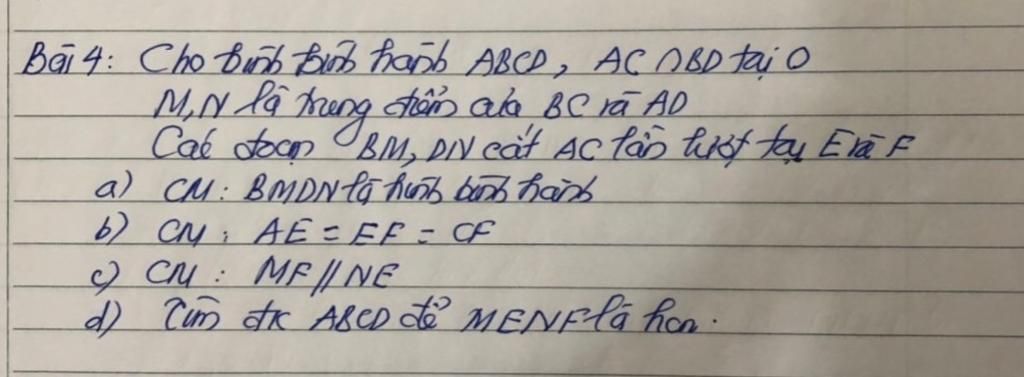 Bài 4: Cho hình bình hành ABCD, AC ∩ BD tại O
M, N là trung điểm của BC và AD
Các đoạn BM, DN cắt AC lần lượt tại E và F
a) CM: BMDN là hình bình hành
b) CM: AE = EF = CF
c) CM: MF // NE
d) Tìm đk ABCD để MENF là hcn.